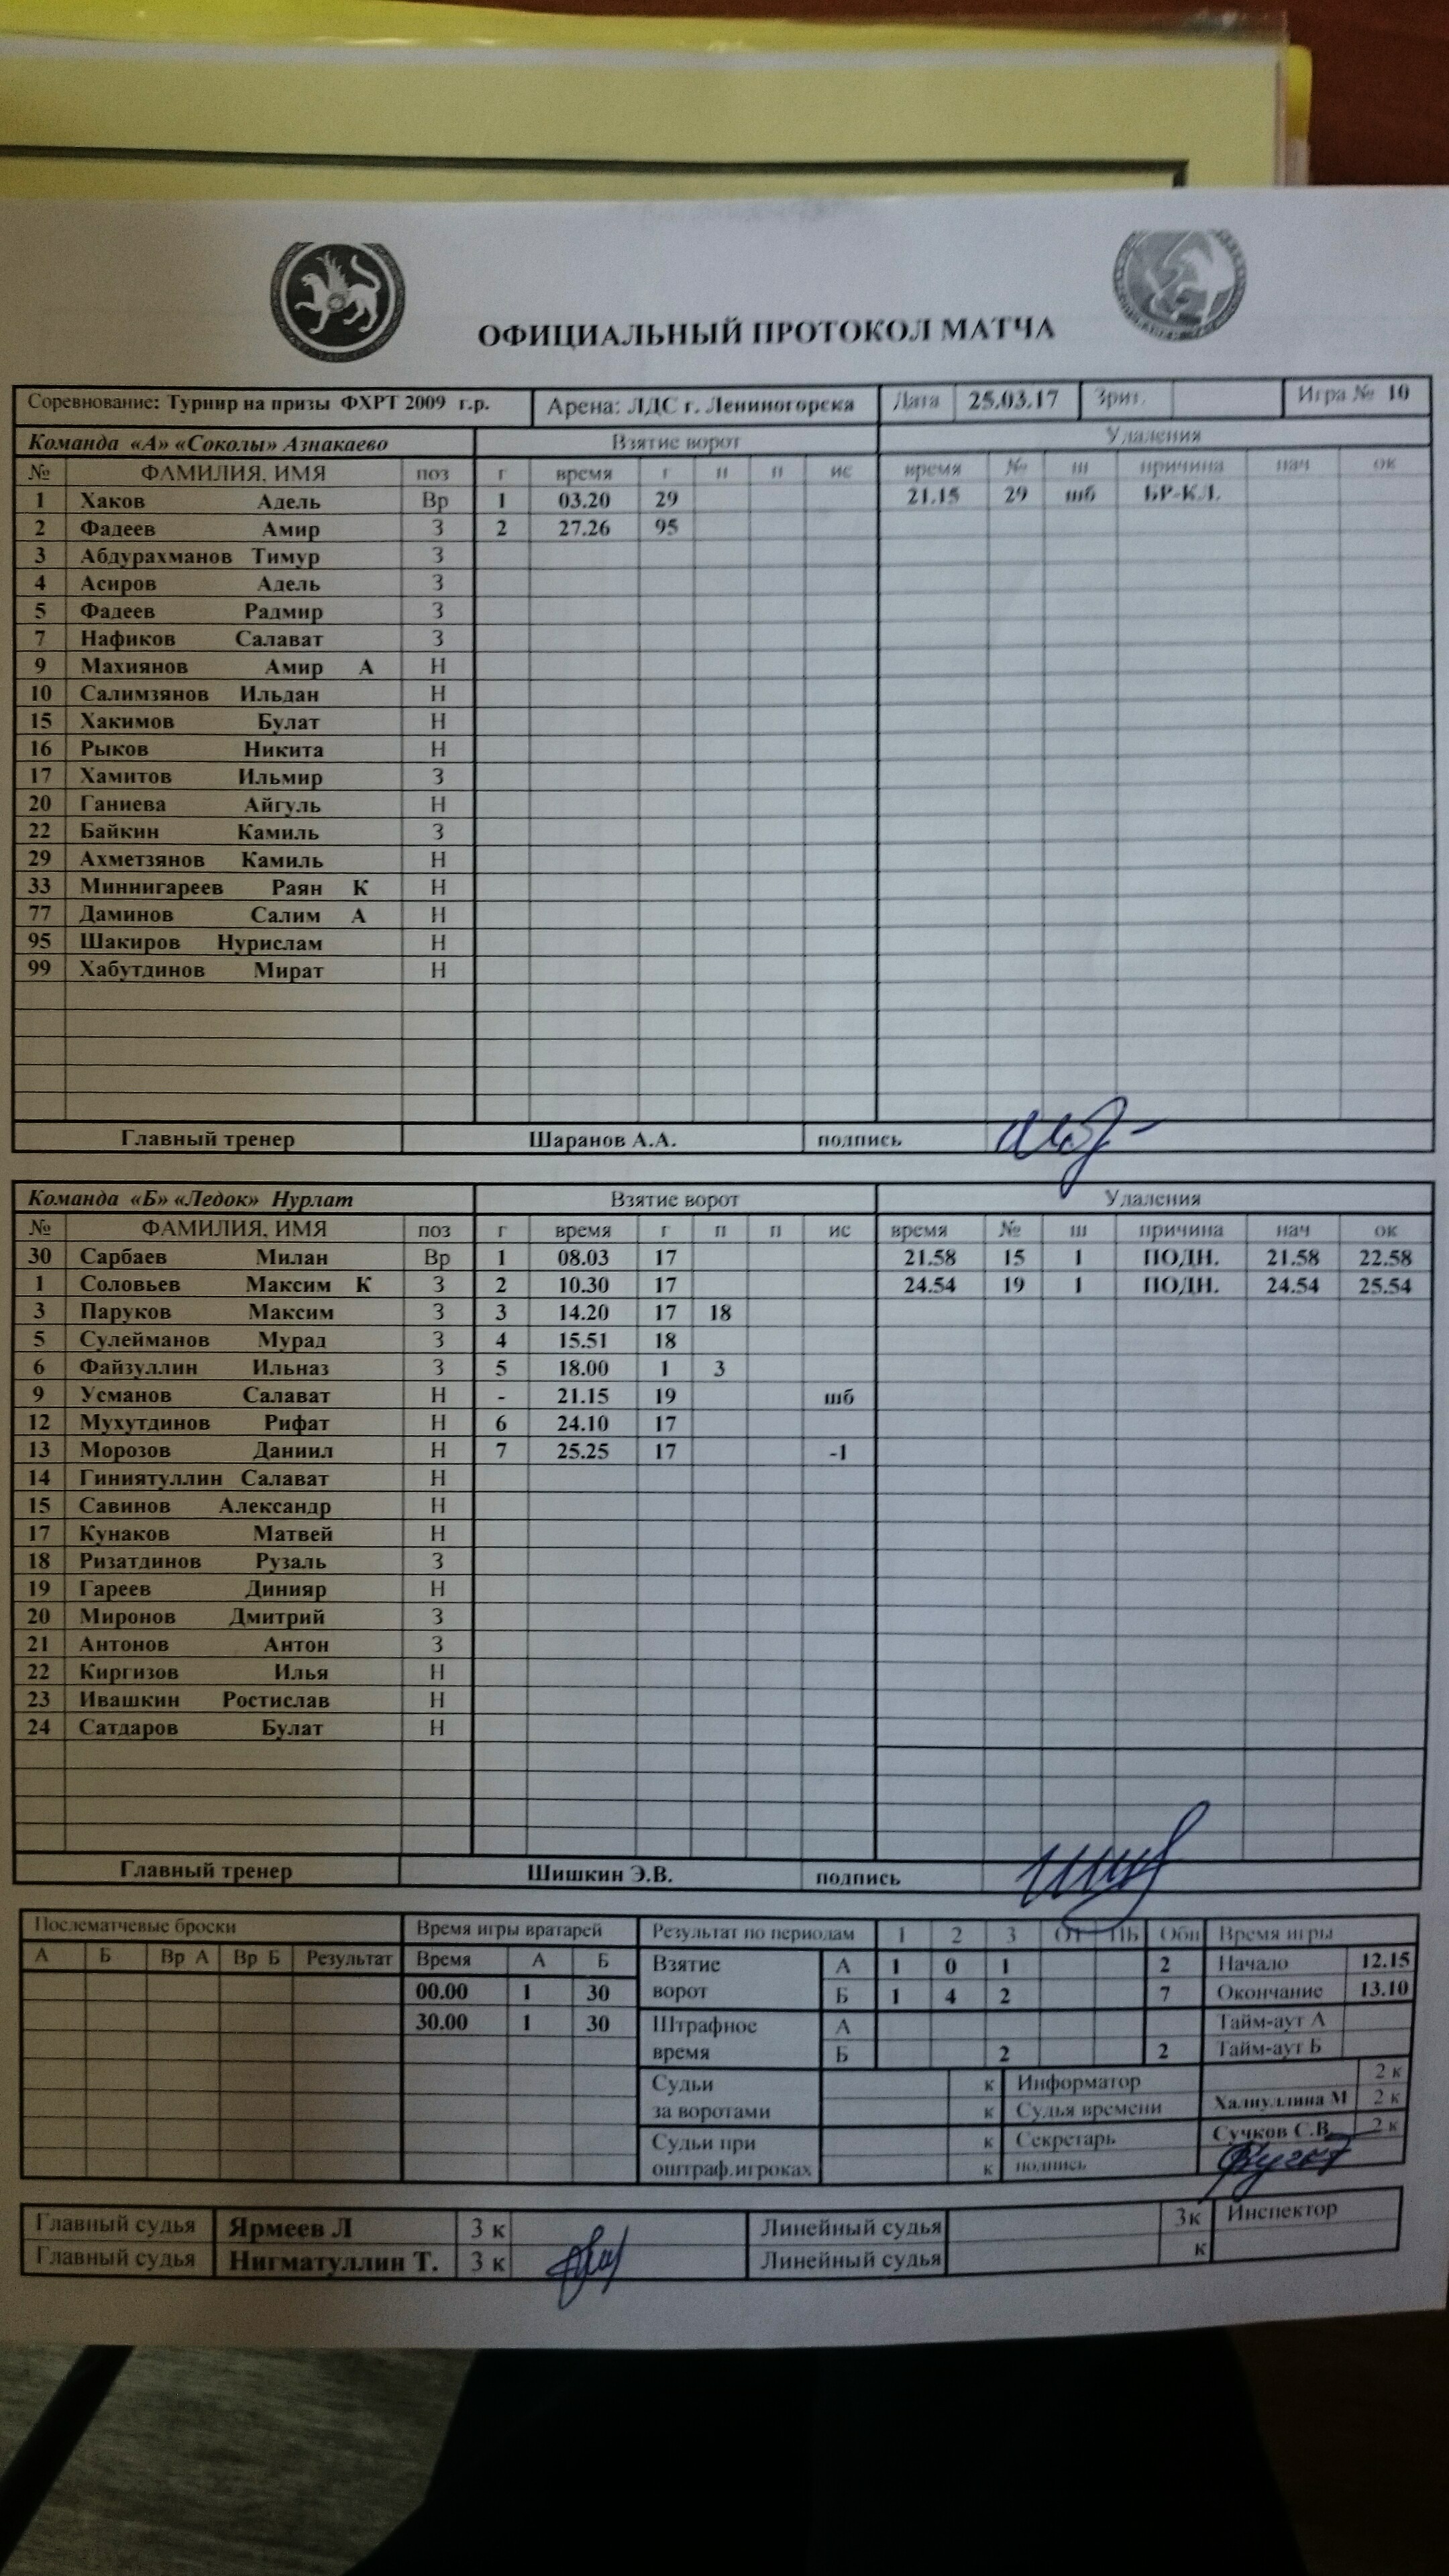 ОФИЦИАЛЬНЫЙ ПРОТОКОЛ МАТЧА
Соревнование: Турнир на призы ФХРТ 2009 г.р. Арена: ЛДС г. Лениногорска Дата 25.03.17 Зрит. Игра № 10
Команда «А» «Соколы» Азнакаево Взятие ворот Удаления
№ ФАМИЛИЯ, ИМЯ поз г время г п п ис время № ш причина нач ок
1 Хаков Адель Вр 1 03.20 29 21.15 29 шб БР-КЛ.
2 Фадеев Амир З 2 27.26 95
3 Абдурахманов Тимур З
4 Асиров Адель З
5 Фадеев Радмир З
7 Нафиков Салават З
9 Махиянов Амир А Н
10 Салимзянов Ильдан Н
15 Хакимов Булат Н
16 Рыков Никита Н
17 Хамитов Ильмир З
20 Ганиева Айгуль Н
22 Байкин Камиль З
29 Ахметзянов Камиль Н
33 Миннигареев Раян К Н
77 Даминов Салим А Н
95 Шакиров Нурислам Н
99 Хабутдинов Мират Н
Главный тренер Шаранов А.А. подпись
Команда «Б» «Ледок» Нурлат Взятие ворот Удаления
№ ФАМИЛИЯ, ИМЯ поз г время г п п ис время № ш причина нач ок
30 Сарбаев Милан Вр 1 08.03 17 21.58 15 1 ПОДН. 21.58 22.58
1 Соловьев Максим К З 2 10.30 17 24.54 19 1 ПОДН. 24.54 25.54
3 Паруков Максим З 3 14.20 17 18
5 Сулейманов Мурад З 4 15.51 18
6 Файзуллин Ильназ З 5 18.00 1 3
9 Усманов Салават Н - 21.15 19 шб
12 Мухутдинов Рифат Н 6 24.10 17
13 Морозов Даниил Н 7 25.25 17 -1
14 Гиниятуллин Салават Н
15 Савинов Александр Н
17 Кунаков Матвей Н
18 Ризатдинов Рузаль З
19 Гареев Динияр Н
20 Миронов Дмитрий З
21 Антонов Антон З
22 Киргизов Илья Н
23 Ивашкин Ростислав Н
24 Сатдаров Булат Н
Главный тренер Шишкин Э.В. подпись
Послематчевые броски Время игры вратарей Результат по периодам 1 2 3 ОТ ПБ Общ Время игры
А Б Вр А Вр Б Результат Время А Б Взятие А 1 0 1 2 Начало 12.15
00.00 1 30 ворот Б 1 4 2 7 Окончание 13.10
30.00 1 30 Штрафное А Тайм-аут А
время Б 2 2 Тайм-аут Б
Судьи к Информатор 2 к
за воротами к Судья времени Халиуллина М 2 к
Судьи при к Секретарь Сучков С.В. 2 к
оштраф.игроках к подпись
Главный судья Ярмеев Л 3 к Линейный судья 3к Инспектор
Главный судья Нигматуллин Т. 3 к Линейный судья к